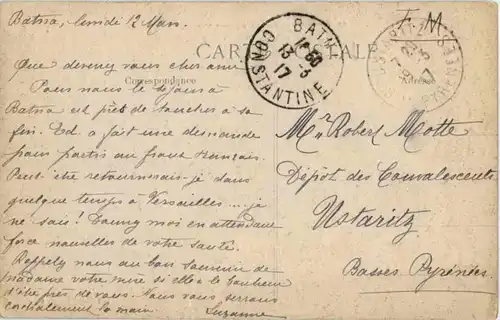 Batna, lundi 12 Mars.
F. M.
CARTE POSTALE
Correspondance
Adresse
BATNA
16 60
13 - 3
17
CONSTANTINE
Que devenez vous cher ami
Pour nous le séjour à
Batna est près de toucher à sa
fin. Ed a fait une demande
pour partir au front
Peut être retournerais-je dans
quelque temps à Versailles.... je
ne sais! Donnez moi en attendant
force nouvelles de votre santé.
Rappelez nous au bon souvenir de
madame votre mère si elle a le bonheur
d'être près de vous. Nous vous serrons
cordialement la main. Suzanne
Mr. Robert Motte
Dépôt des Convalescents
Ustaritz
Basses Pyrénées.